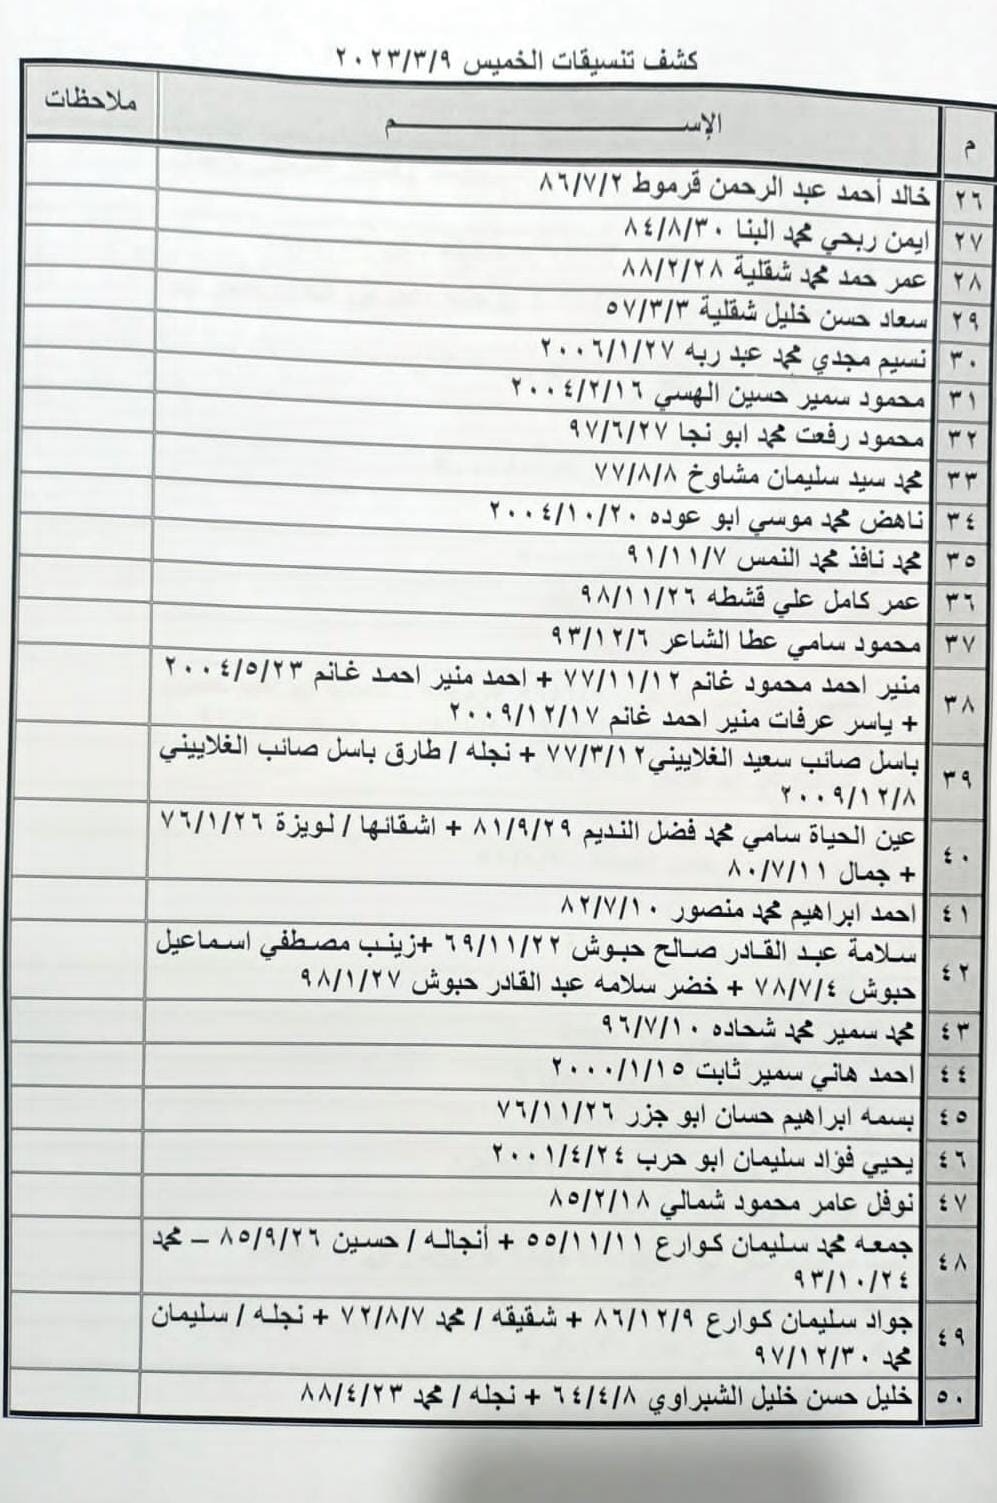 كشف تنسيقات الخميس ٢٠٢٣/٣/٩
م الإســـــــم ملاحظات
٢٦ خالد أحمد عبد الرحمن قرموط ٨٦/٧/٢
٢٧ ايمن ربحي محمد البنا ٨٤/٨/٣٠
٢٨ عمر حمد محمد شقلية ٨٨/٢/٢٨
٢٩ سعاد حسن خليل شقلية ٥٧/٣/٣
٣٠ نسيم مجدي محمد عبد ربه ٢٠٠٦/١/٢٧
٣١ محمود سمير حسين الهسي ٢٠٠٤/٢/١٦
٣٢ محمود رفعت محمد ابو نجا ٩٧/٦/٢٧
٣٣ محمد سيد سليمان مشاوخ ٧٧/٨/٨
٣٤ ناهض محمد موسي ابو عوده ٢٠٠٤/١٠/٢٠
٣٥ محمد نافذ محمد النمس ٩١/١١/٧
٣٦ عمر كامل علي قشطه ٩٨/١١/٢٦
٣٧ محمود سامي عطا الشاعر ٩٣/١٢/٦
٣٨ منير احمد محمود غانم ٧٧/١١/١٢ + احمد منير احمد غانم ٢٠٠٤/٥/٢٣
+ ياسر عرفات منير احمد غانم ٢٠٠٩/١٢/١٧
٣٩ باسل صائب سعيد الغلاييني٧٧/٣/١٢ + نجله / طارق باسل صائب الغلاييني
٢٠٠٩/١٢/٨
٤٠ عين الحياة سامي محمد فضل النديم ٨١/٩/٢٩ + اشقائها / لويزة ٧٦/١/٢٦
+ جمال ٨٠/٧/١١
٤١ احمد ابراهيم محمد منصور ٨٢/٧/١٠
٤٢ سلامة عبد القادر صالح حبوش ٦٩/١١/٢٢ +زينب مصطفي اسماعيل
حبوش ٧٨/٧/٤ + خضر سلامه عبد القادر حبوش ٩٨/١/٢٧
٤٣ محمد سمير محمد شحاده ٩٦/٧/١٠
٤٤ احمد هاني سمير ثابت ٢٠٠٠/١/١٥
٤٥ بسمه ابراهيم حسان ابو جزر ٧٦/١١/٢٦
٤٦ يحيي فؤاد سليمان ابو حرب ٢٠٠١/٤/٢٤
٤٧ نوفل عامر محمود شمالي ٨٥/٢/١٨
٤٨ جمعه محمد سليمان كوارع ٥٥/١١/١١ + أنجاله / حسين ٨٥/٩/٢٦ – محمد
٩٣/١٠/٢٤
٤٩ جواد سليمان كوارع ٨٦/١٢/٩ + شقيقه / محمد ٧٢/٨/٧ + نجله / سليمان
محمد ٩٧/١٢/٣٠
٥٠ خليل حسن خليل الشبراوي ٦٤/٤/٨ + نجله / محمد ٨٨/٤/٢٣